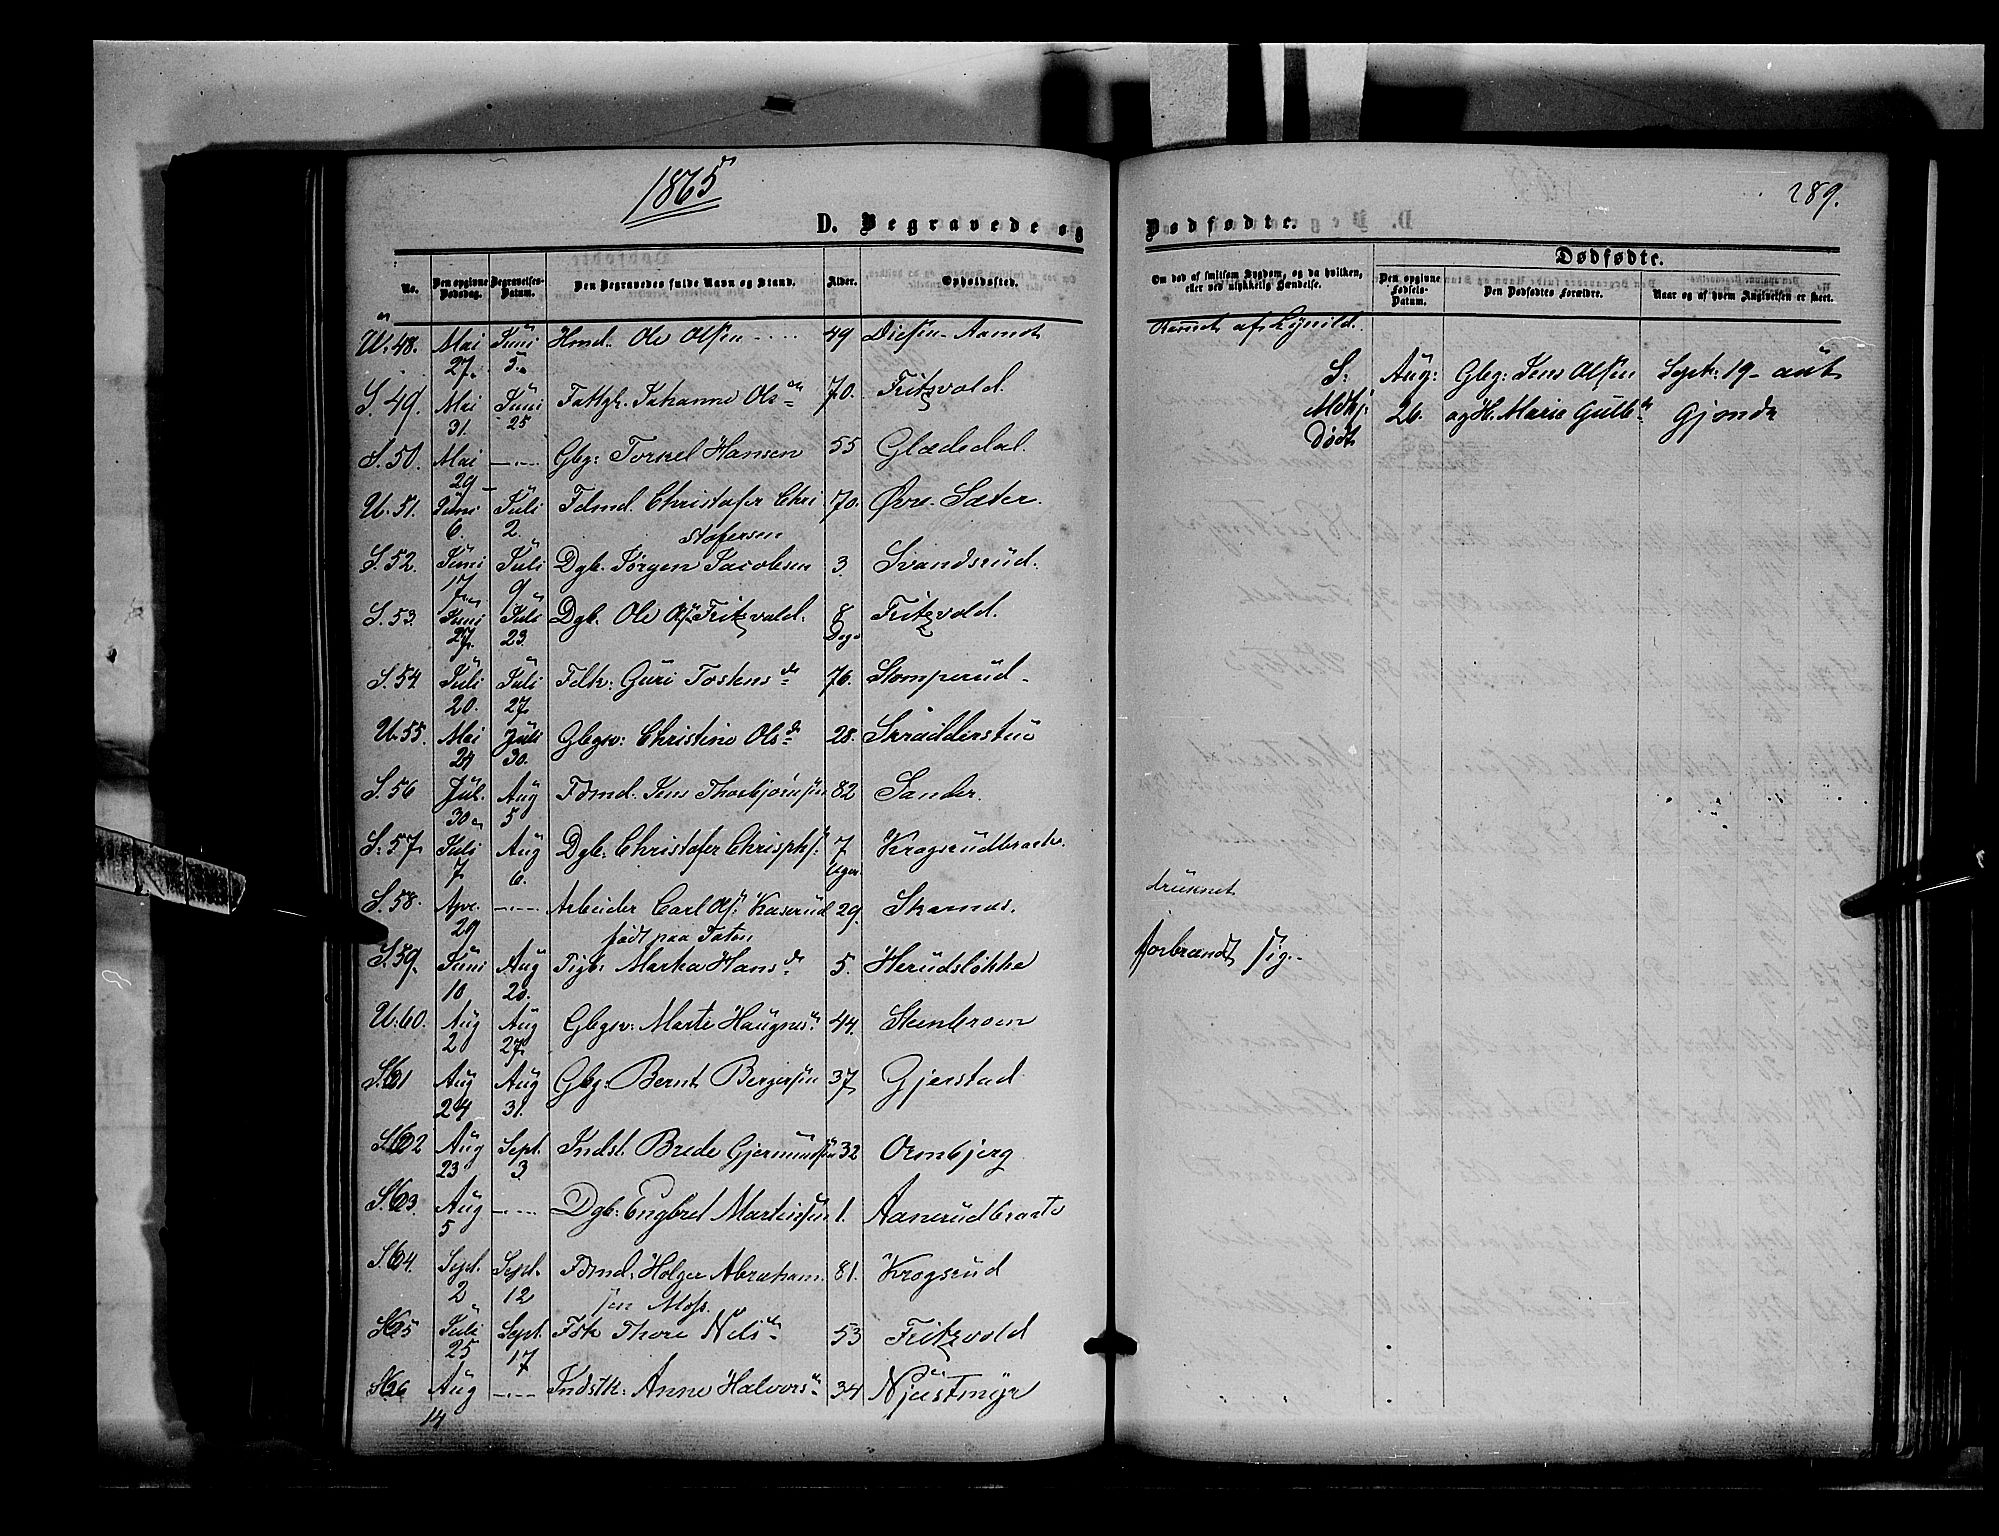 1865
289.
D. Begravede og Dødfødte.
No. Den opgivne Dødsdag. Begravelses-Datum. Den Begravedes fulde Navn og Stand. Alder. Opholdssted. Om død af smitsom Sygdom, og da hvilken, eller ved ulykkelig Hændelse.
Dødfødte.
Den opgivne Fødsels-Datum. Den Dødfødtes Forældre. Naar og af hvem Angivelsen er skeet.
U. 48. Mai 27. Juni 5. Hmd. Ole Olsen 49 Diesen Aamot Ramnet af Lynild.
S: Mdkj: Dødt Aug: 26. Gbg: Jens Olsen og H. Marie Gulb Sept: 19 Gjonda
S. 49. Mai 31. Juni 25 Fattgk. Johanne Olsd 70. Fritzvold
S. 50. Mai 29 Gbg: Torkel Hansen 55 Glædedal.
U. 51. Juni 6. Juli 2. Fdmd. Christofer Christofersen 70. Øvre Sæter.
S. 52. Juni 17 Juli 9 Dgb. Jørgen Jacobsen 3. Svandsrud.
S. 53. Juni 27. Juli 23. Dgb. Ole Ols. Fritzvold. 8 Dage Fritzvold.
S. 54 Juli 20. Juli 27 Fdk: Guri Tostensd 76. Stomperud
U. 55. Mai 24 Juli 30. Gbgsv: Christine Olsd 28. Skrædderstue
S. 56 Jul. 30 Aug 5 Fdmd. Jens Thorbjørnsen 82 Sander.
S. 57. Juli 7. Aug 6. Dgb: Christofer Christophs. 7 Uger Krogsrudbraate.
S. 58. Apr. 29 Arbeider Carl Ols. Kaserud født paa Toten 29. Skarnæs. druknet
S. 59. Juni 10 Aug 20. Pigb. Marthe Hansd 5. Herudsløkke forbrændt sig.
U. 60. Aug 2 Aug 27. Gbgsv: Marte Haagnesd 44. Steenbroen
S. 61 Aug 24 Aug 31. Gbg: Bernt Bergersen 37 Gjerstad
S. 62 Aug 23 Sept. 3. Indst. Brede Gjermundsen 32 Ormbjerg
S. 63. Aug 5 Dgb: Engbret Martinsen 1. Aanerudbraate
S. 64 Sept. 2 Sept. 12 Fdmd. Holger Abrahamsen Moss. 81. Krogsrud
S. 65 Juli 25 Sept. 17 Fdk Thore Nilsd 53 Fritzvold
S. 66 Aug 14 Indstk: Anne Halvorsd 34 Njustmyr